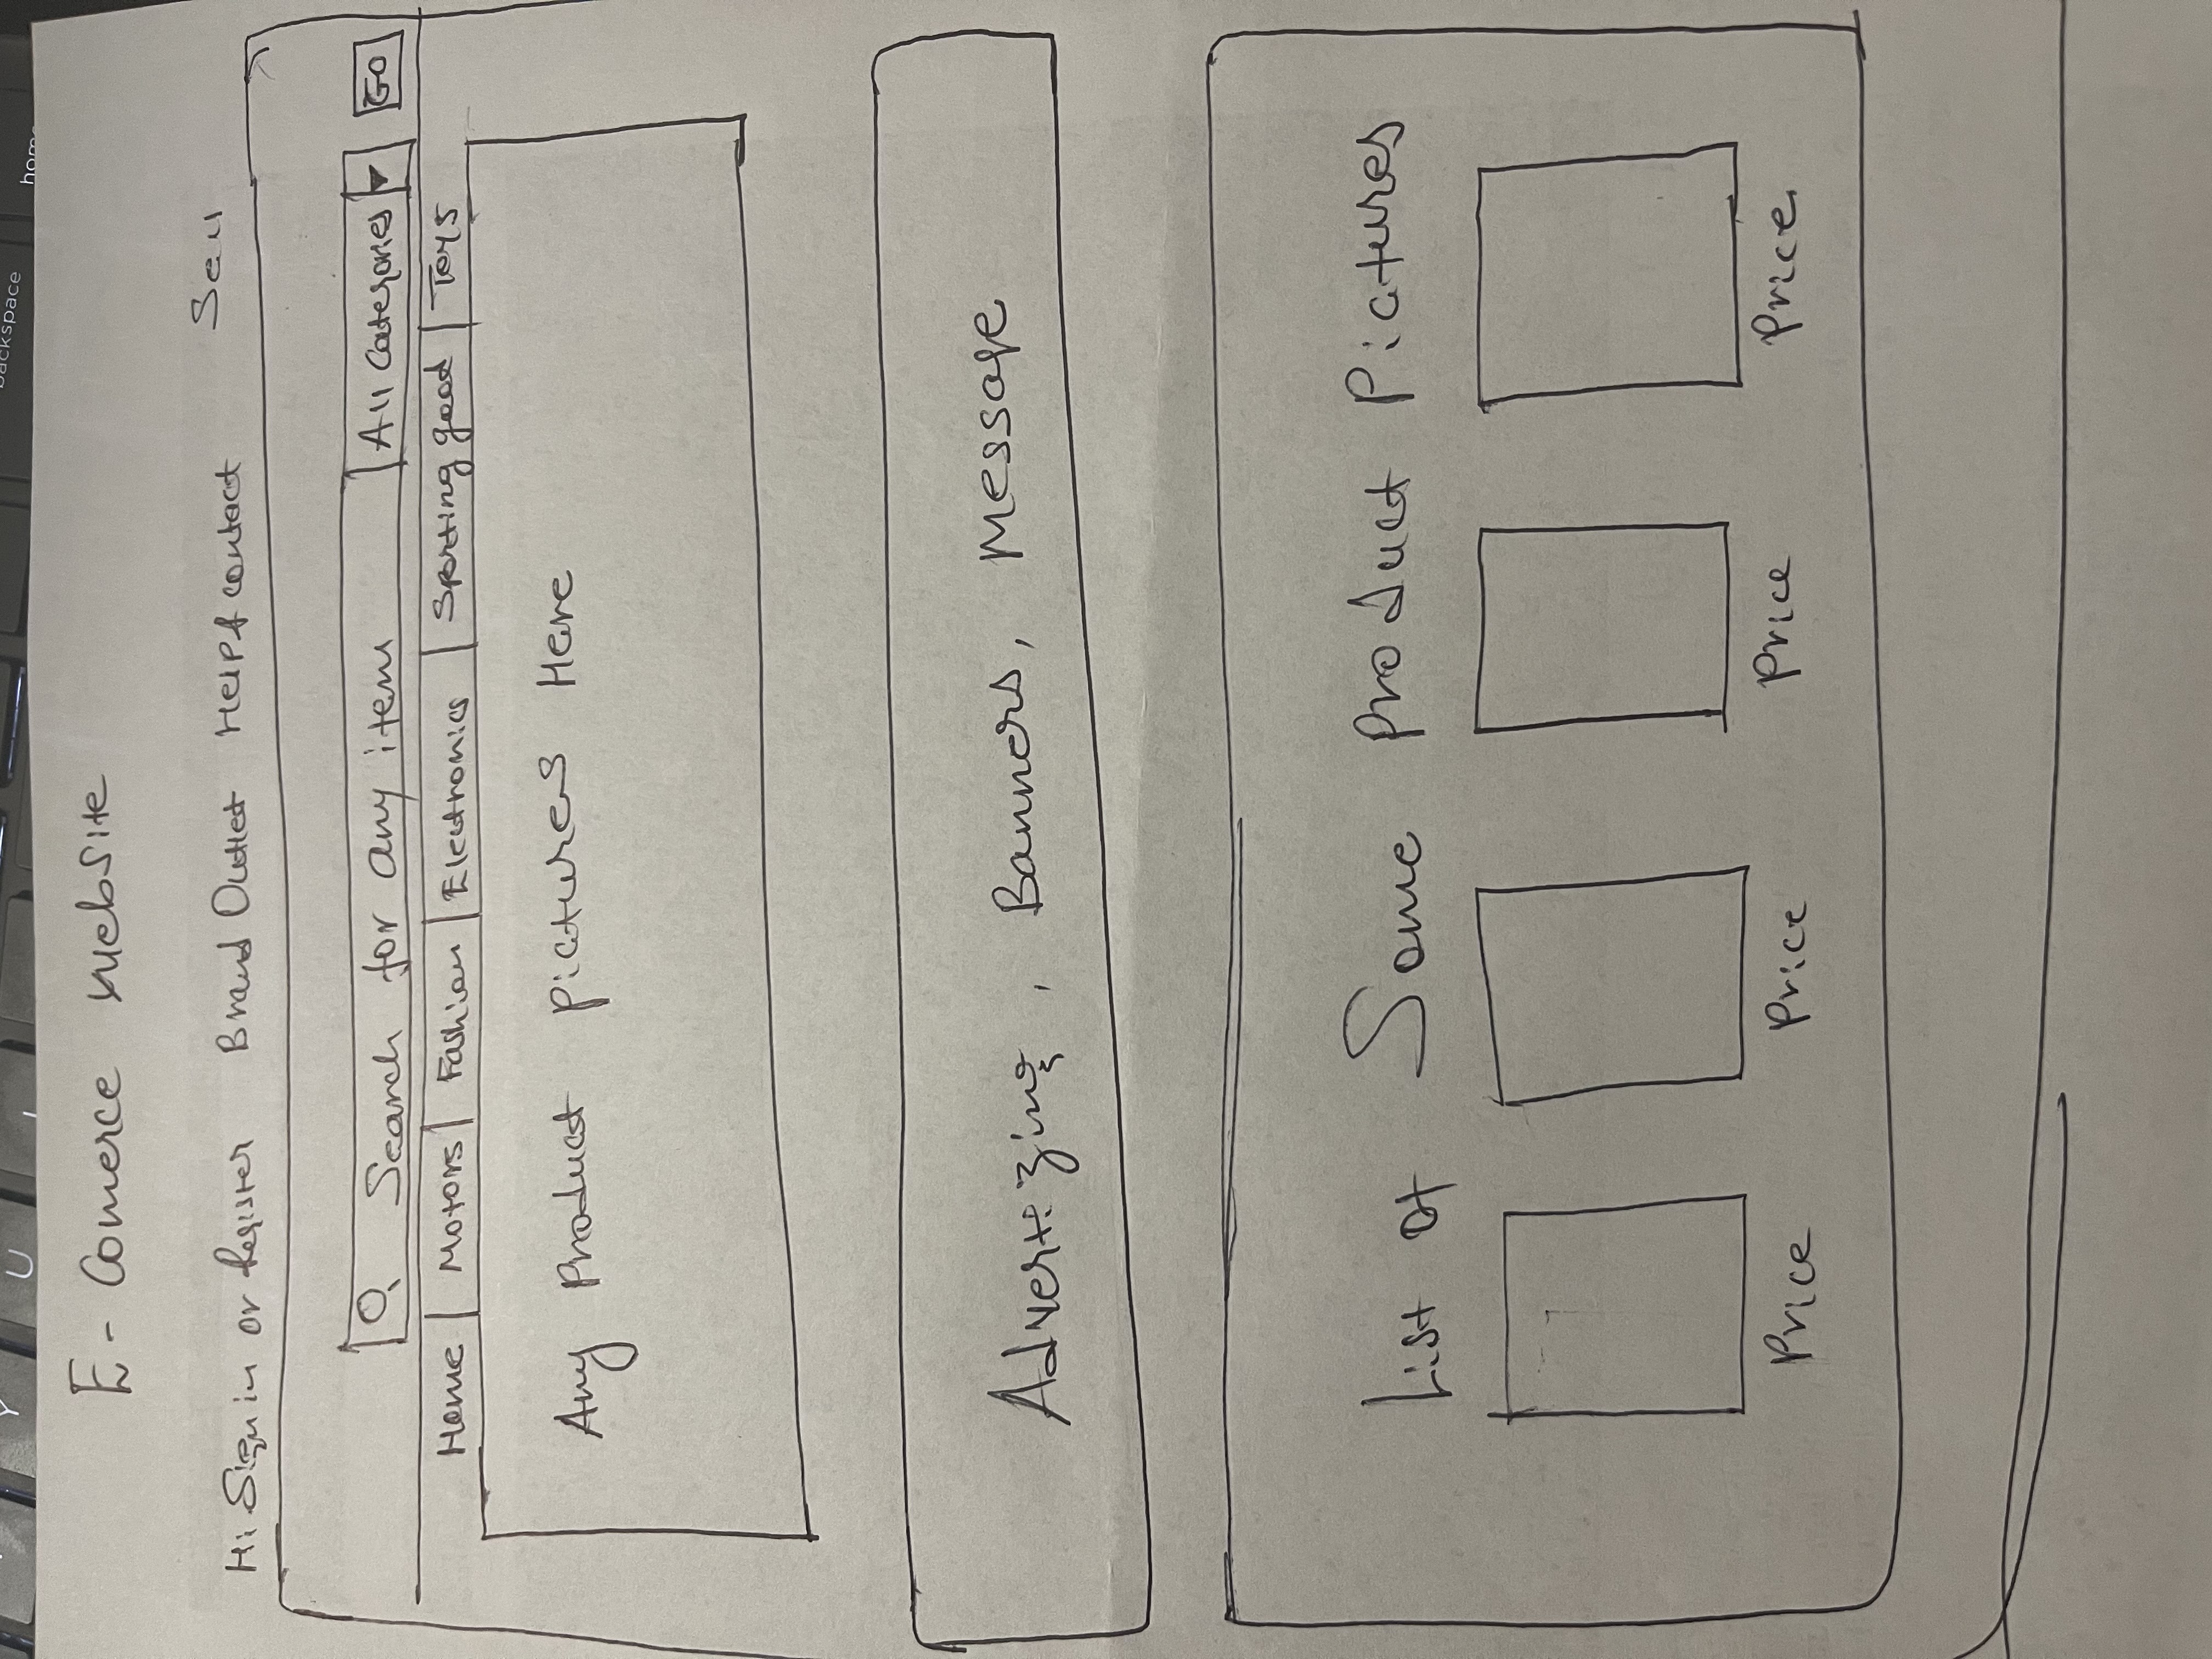 backspace
home
Y
U
E - Comerce website
Hi Sign in or Register Brand Outlet Help & contact Sell
Search for any item All Categories GO
Home Motors Fashion Electronics Sporting good Toys
Any Product pictures Here
Advertizing, Banners, Message
List of Some product Pictures
Price Price Price Price